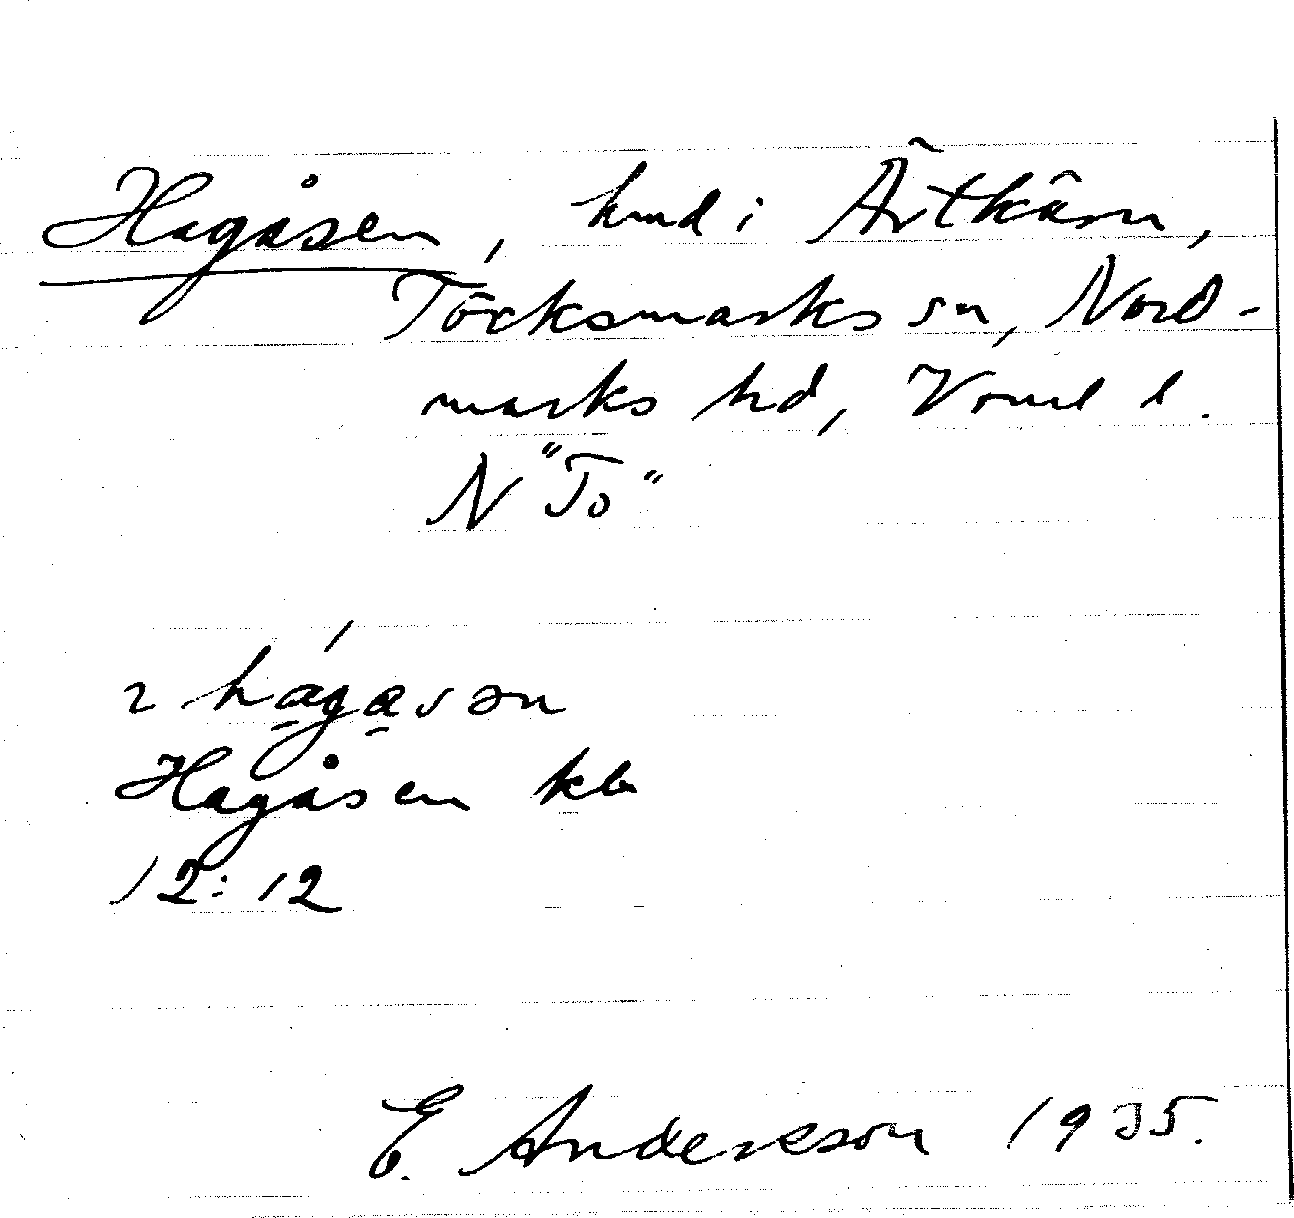 Hagåsen, hmd i Ärtkärn,
Töcksmarks sn, Nord-
marks hd, Vrml l.
N "To"
2 hágasən
Hagåsen kb
12:12
E. Andersson 1935.